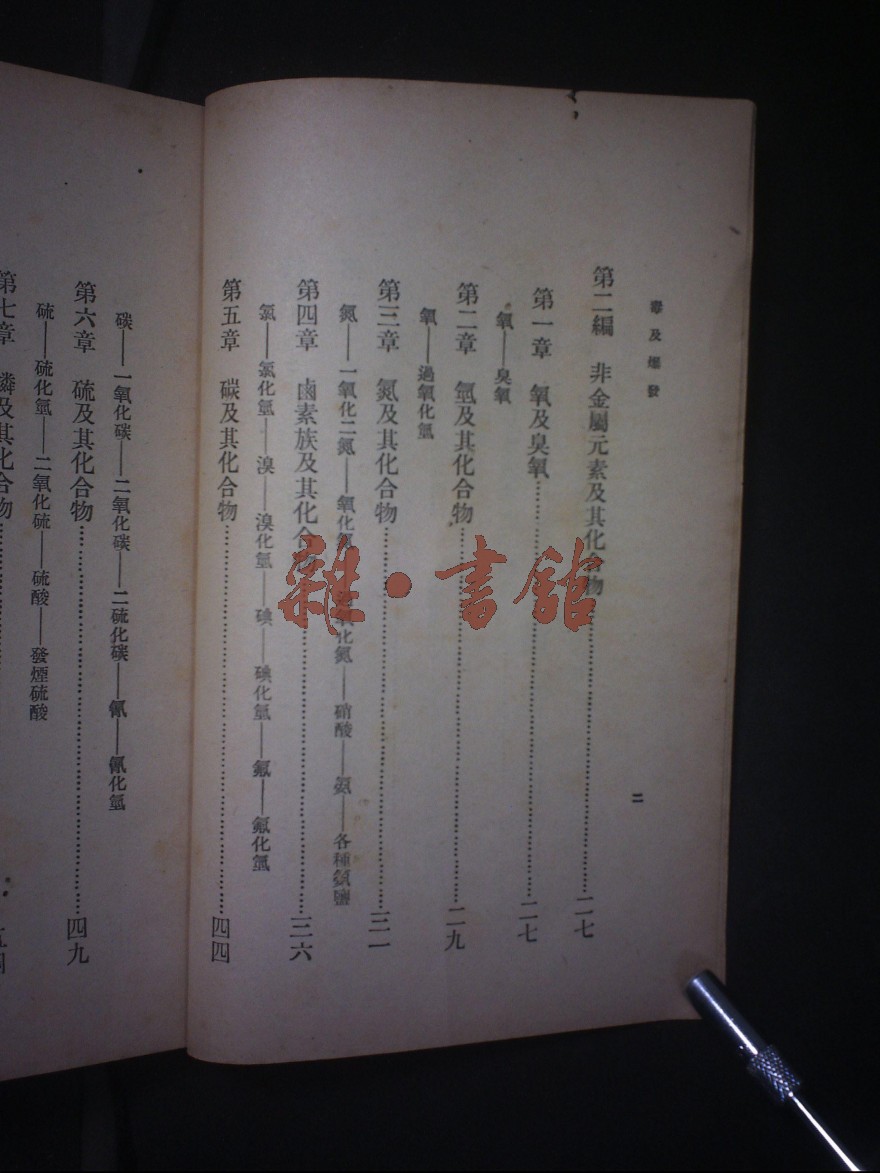 毒及爆發
二
第二編　非金屬元素及其化合物……二七
第一章　氧及臭氧……二七
氧——臭氧
第二章　氫及其化合物……二九
氫——過氧化氫
第三章　氮及其化合物……三一
氮——一氧化二氮——氧化氮——過氧化氮——硝酸——氨——各種氨鹽
第四章　鹵素族及其化合物……三六
氯——氯化氫——溴——溴化氫——碘——碘化氫——氟——氟化氫
第五章　碳及其化合物……四四
碳——一氧化碳——二氧化碳——二硫化碳——氰——氰化氫
第六章　硫及其化合物……四九
硫——硫化氫——二氧化硫——硫酸——發煙硫酸
第七章　磷及其化合物……
雜·書館